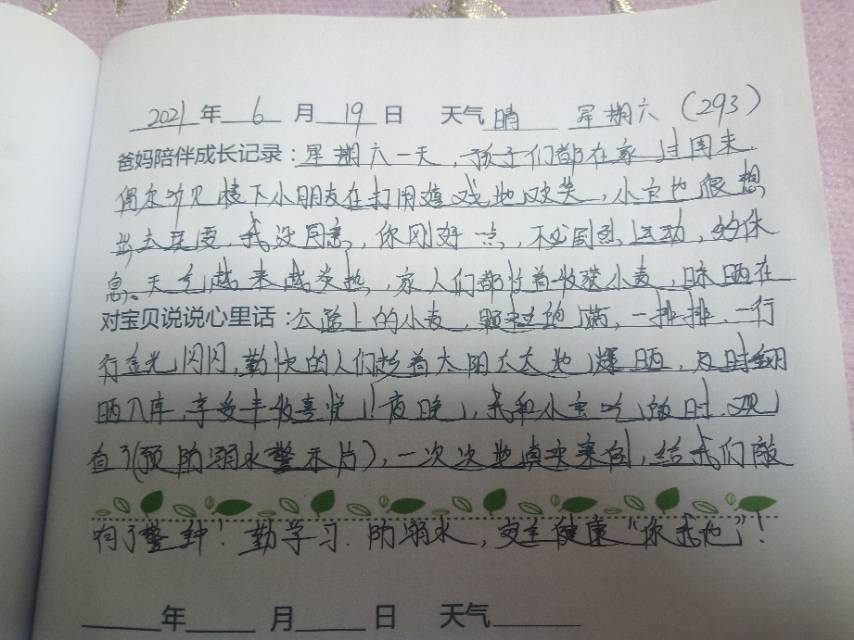 2021年 6 月 19 日 天气 晴 星期六（293）
爸妈陪伴成长记录：星期六一天，孩子们都在家过周末
偶尔听见楼下小朋友在打闹嬉戏地欢笑，小宝也很想
出去玩耍，我没同意，你刚好点，不必剧烈运动，好好休
息。天气越来越炎热，家人们都忙着收获小麦，晾晒在
对宝贝说说心里话：公路上的小麦，颗粒饱满，一排排，一行
行金光闪闪，勤快的人们趁着太阳大大地爆晒，及时翻
晒入库，享受丰收喜悦！夜晚，我和小宝吃饭时，观
看了(预防溺水警示片)，一次次地真实案例，给我们敲
响了警钟！勤学习，防溺水，安全健康“你我他”！
年 月 日 天气